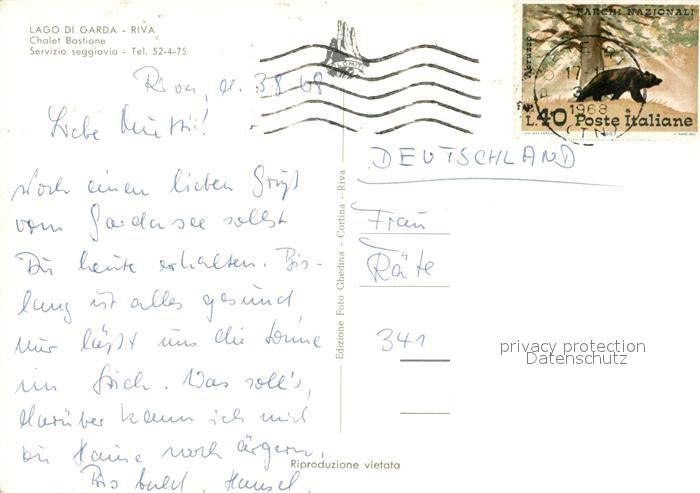 LAGO DI GARDA - RIVA
Chalet Bastione
Servizio seggiovia - Tel. 52-4-75
DOLOMITI
PARCHI NAZIONALI
Abruzzo
17
1968
L. 40 Poste Italiane
Riva, d. 3.8.68
Liebe Mutti!
Noch einen lieben Gruß
vom Gardasee sollst
Du heute erhalten. Bis-
lang ist alles gesund,
nur läßt uns die Sonne
im Stich. Was soll's,
darüber kann ich mich
zu Hause noch ärgern.
Bis bald, Hansel
Edizione Foto Ghedina - Cortina - Riva
Riproduzione vietata
DEUTSCHLAND
Frau
Käte
341
privacy protection
Datenschutz